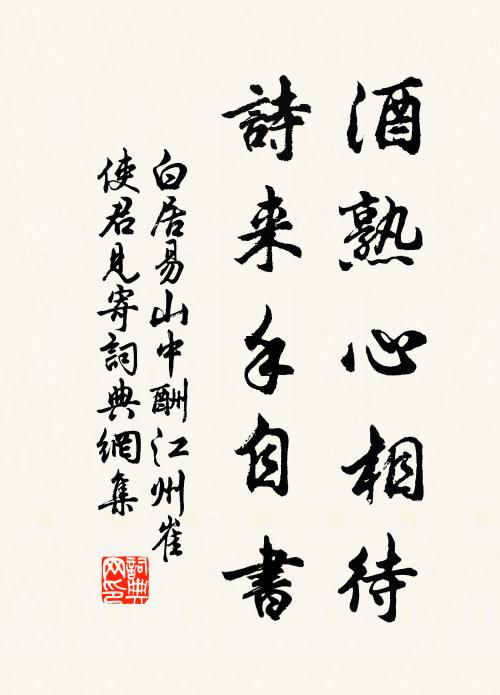 酒熟心相待
詩来手自書
白居易山中酬江州崔
使君見寄詞典網集
詞典网印